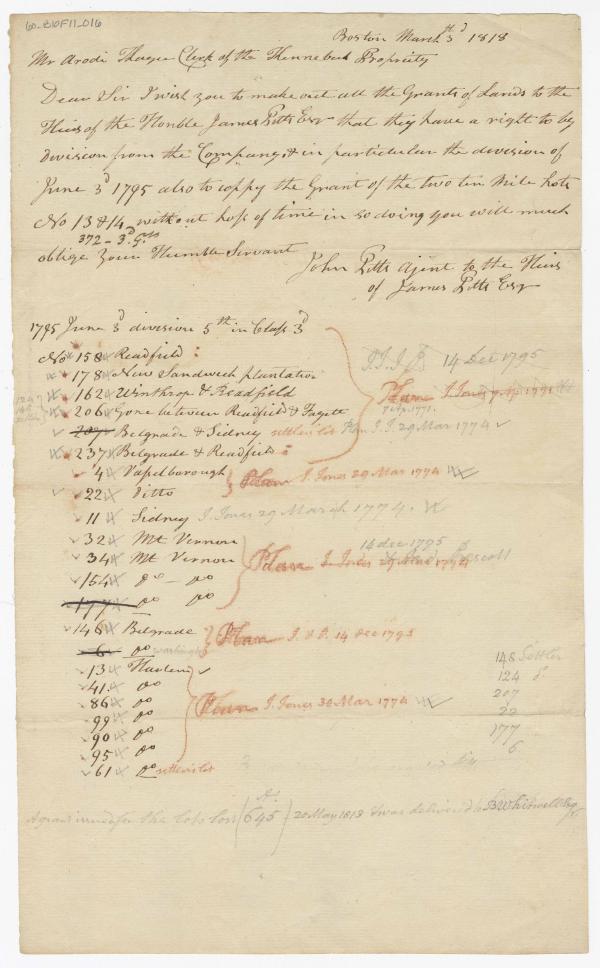 60-B10F11_016
Boston March 3d 1818
Mr Arodi Thayer Clerk of the Kennebeck Propriety
Dear Sir I wish you to make out all the Grants of Lands to the
Heirs of the Honble James Pitts Esqr that they have a right to by
Division from the Company & in particular the division of
June 3d 1795 also to coppy the Grant of the two ten Mile lots
No 13 & 14 without loss of time in so doing you will much
372 - 3d
oblige Your Humble Servant
John Pitts Agent to the Heirs
of James Pitts Esqr
1795 June 3d division 5th in Class 3d
No 158 Readfield
14 Dec 1795
178 New Sandwich plantation
162 Winthrop & Readfield
Plan J. Jones
206 Gore between Readfield & Fayett
207 Belgrade & Sidney settlers lot Plan J. J. 29 Mar 1774
237 Belgrade & Readfield
4 Vassalborough
Plan J. Jones 29 Mar 1774
22 Ditto
11 Sidney J. Jones 29 March 1774.
32 Mt Vernon
14 dec 1795
34 Mt Vernon
Plan J. Jones 29 Mar 1774
154 do - do
177 do do
146 Belgrade
Plan J. & P. 14 Dec 1795
6 do
13 Harlem
148 Settler
41 do
124 do
86 do
Plan J. Jones 30 Mar 1774
207
99 do
22
90 do
177
95 do
6
61 do settlers lot
A grant issued for the lots lost (No. 645) 20 May 1818 & was delivered to B Whitwell Esq